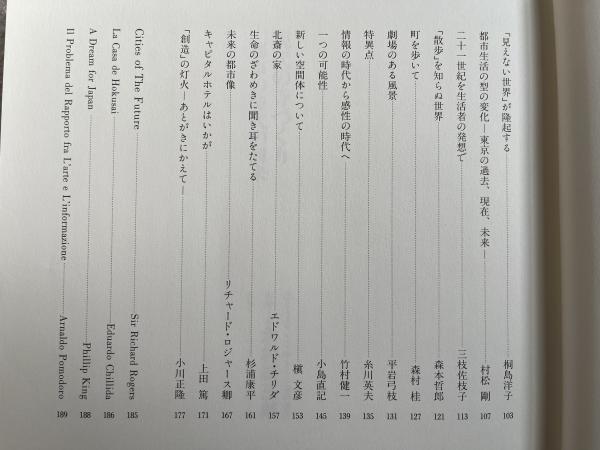 「見えない世界」が隆起する 桐島洋子 103
都市生活の型の変化―東京の過去、現在、未来― 村松 剛 107
二十一世紀を生活者の発想で 三枝佐枝子 113
「散歩」を知らぬ世界 森本哲郎 121
町を歩いて 森村 桂 127
劇場のある風景 平岩弓枝 131
特異点 糸川英夫 135
情報の時代から感性の時代へ 竹村健一 139
一つの可能性 小島直記 145
新しい空間体について 槇 文彦 153
北斎の家 エドワルド・チリダ 157
生命のざわめきに聞き耳をたてる 杉浦康平 161
未来の都市像 リチャード・ロジャース卿 167
キャピタルホテルはいかが 上田 篤 171
「創造」の灯火―あとがきにかえて― 小川正隆 177
Cities of The Future Sir Richard Rogers 185
La Casa de Hokusai Eduardo Chillida 186
A Dream for Japan Phillip King 188
Il Problema del Rapporto fra L'arte e L'informazione Arnaldo Pomodoro 189